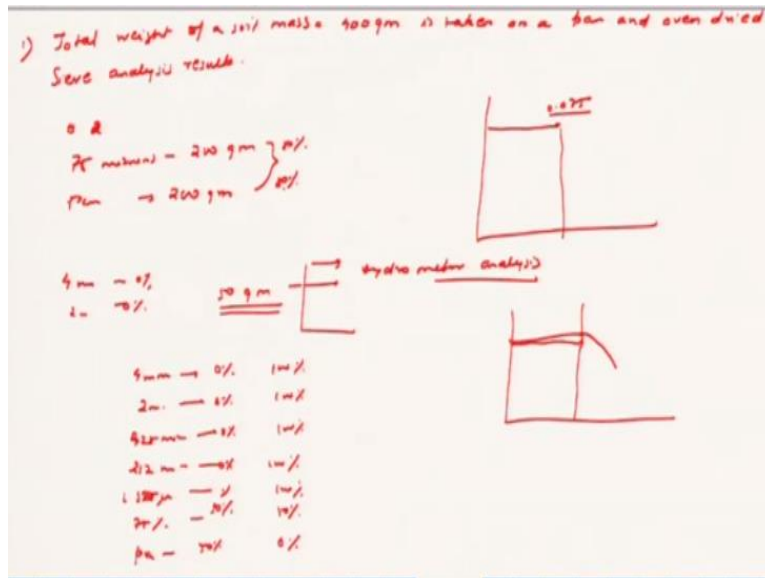 1) Total weight of a soil mass = 400gm is taken on a pan and oven dried
Seve analysis results.
75 microns - 200 gm 50%.
Pan → 200 gm 50%.
0.075
4 mm - 0%
2m - 0%.
50 gm
hydrometer analysis
4mm → 0%. 100%.
2m. — 0%. 100%
425 → 0% 100%
212 m - → 0% 100%.
100%.
75 — 50%. 50%.
pan — 50% 0%.